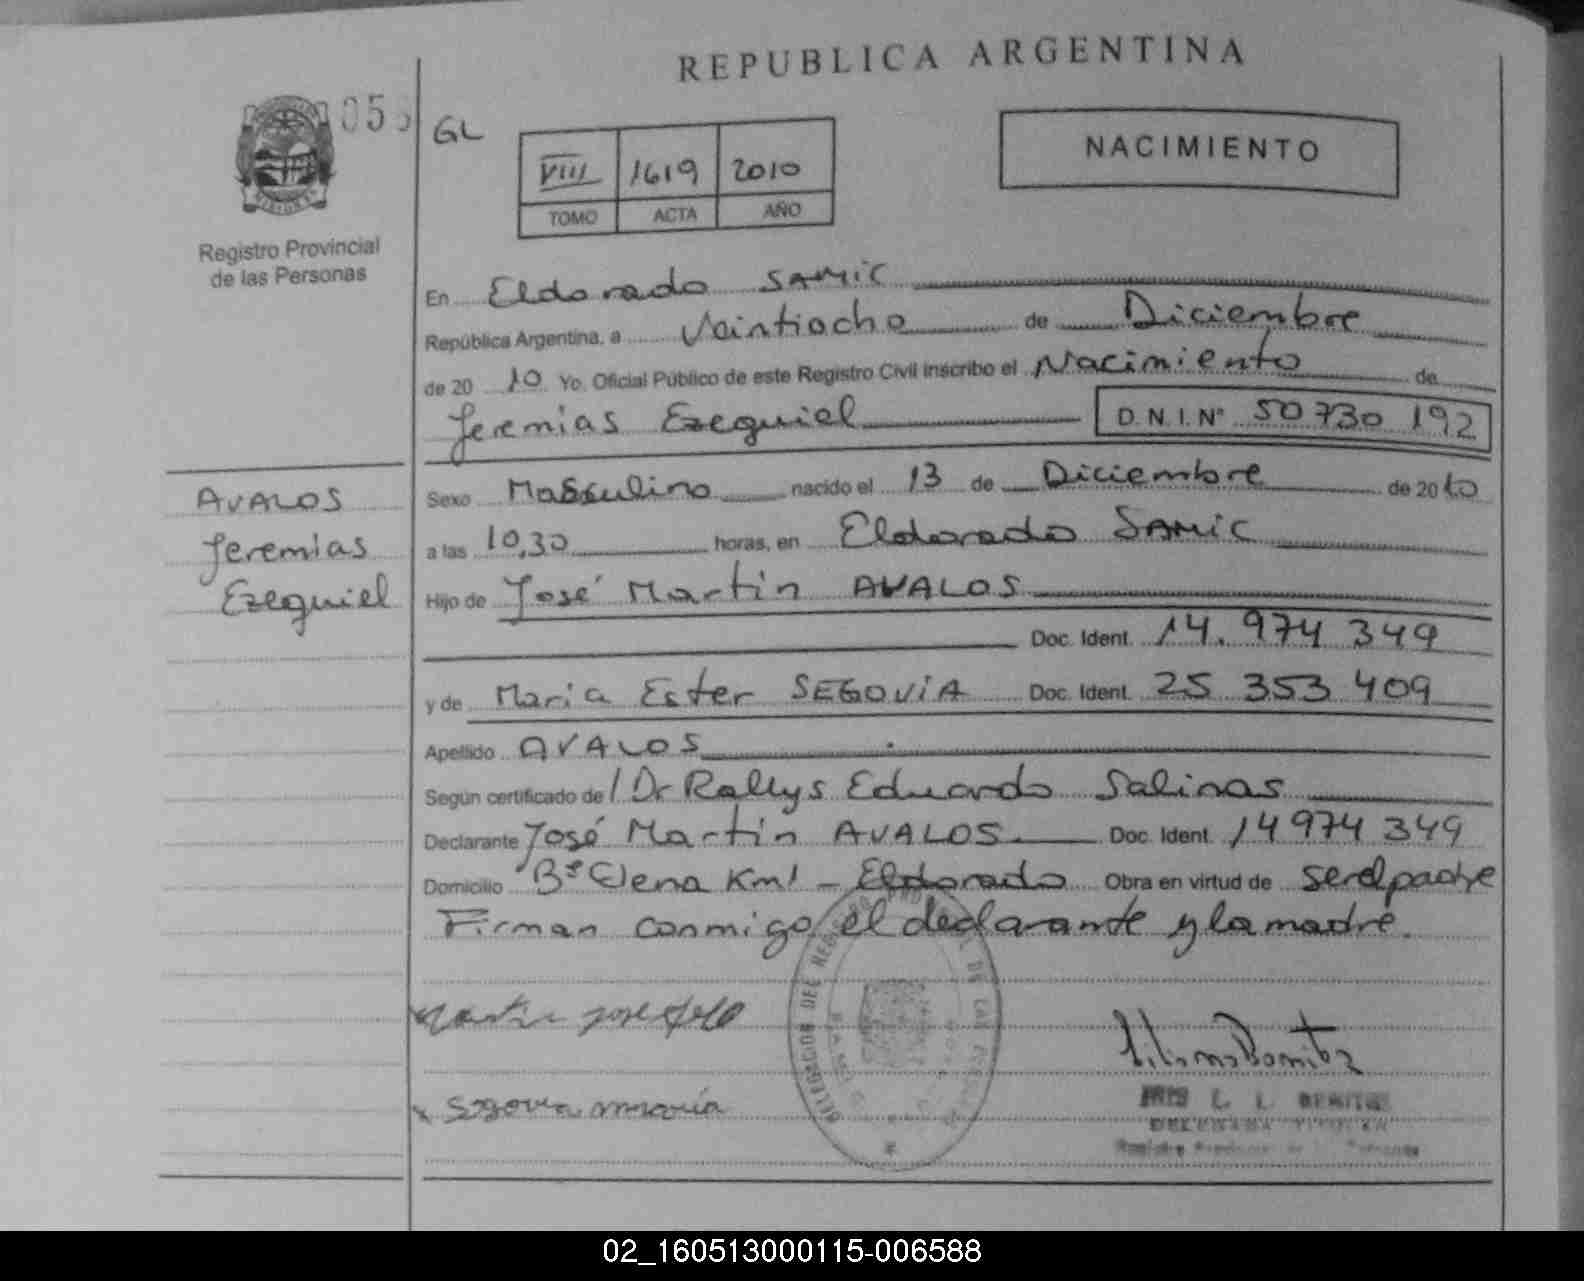 REPUBLICA ARGENTINA
055
GL
NACIMIENTO
VIII 1619 2010
TOMO ACTA AÑO
Registro Provincial
de las Personas
En Eldorado SAMIC
República Argentina, a Veintiocho de Diciembre
de 20 10 Yo. Oficial Público de este Registro Civil inscribo el Nacimiento de
Jeremias Ezequiel D.N.I. N° 50 730 192
AVALOS
Jeremias
Ezequiel
Sexo Masculino nacido el 13 de Diciembre de 2010
a las 10,30 horas, en Eldorado SAMIC
Hijo de José Martin AVALOS
Doc. Ident. 14.974 349
y de Maria Ester SEGOVIA Doc. Ident. 25 353 409
Apellido AVALOS
Según certificado de / Dr Rallys Eduardo Salinas
Declarante José Martin AVALOS Doc. Ident. 14974 349
Domicilio B° Elena Km 1 - Eldorado Obra en virtud de ser el padre
Firman conmigo el declarante y la madre.
DELEGACION DEL REGISTRO PROVINCIAL DE LAS PERSONAS
Segovia maría
02_160513000115-006588